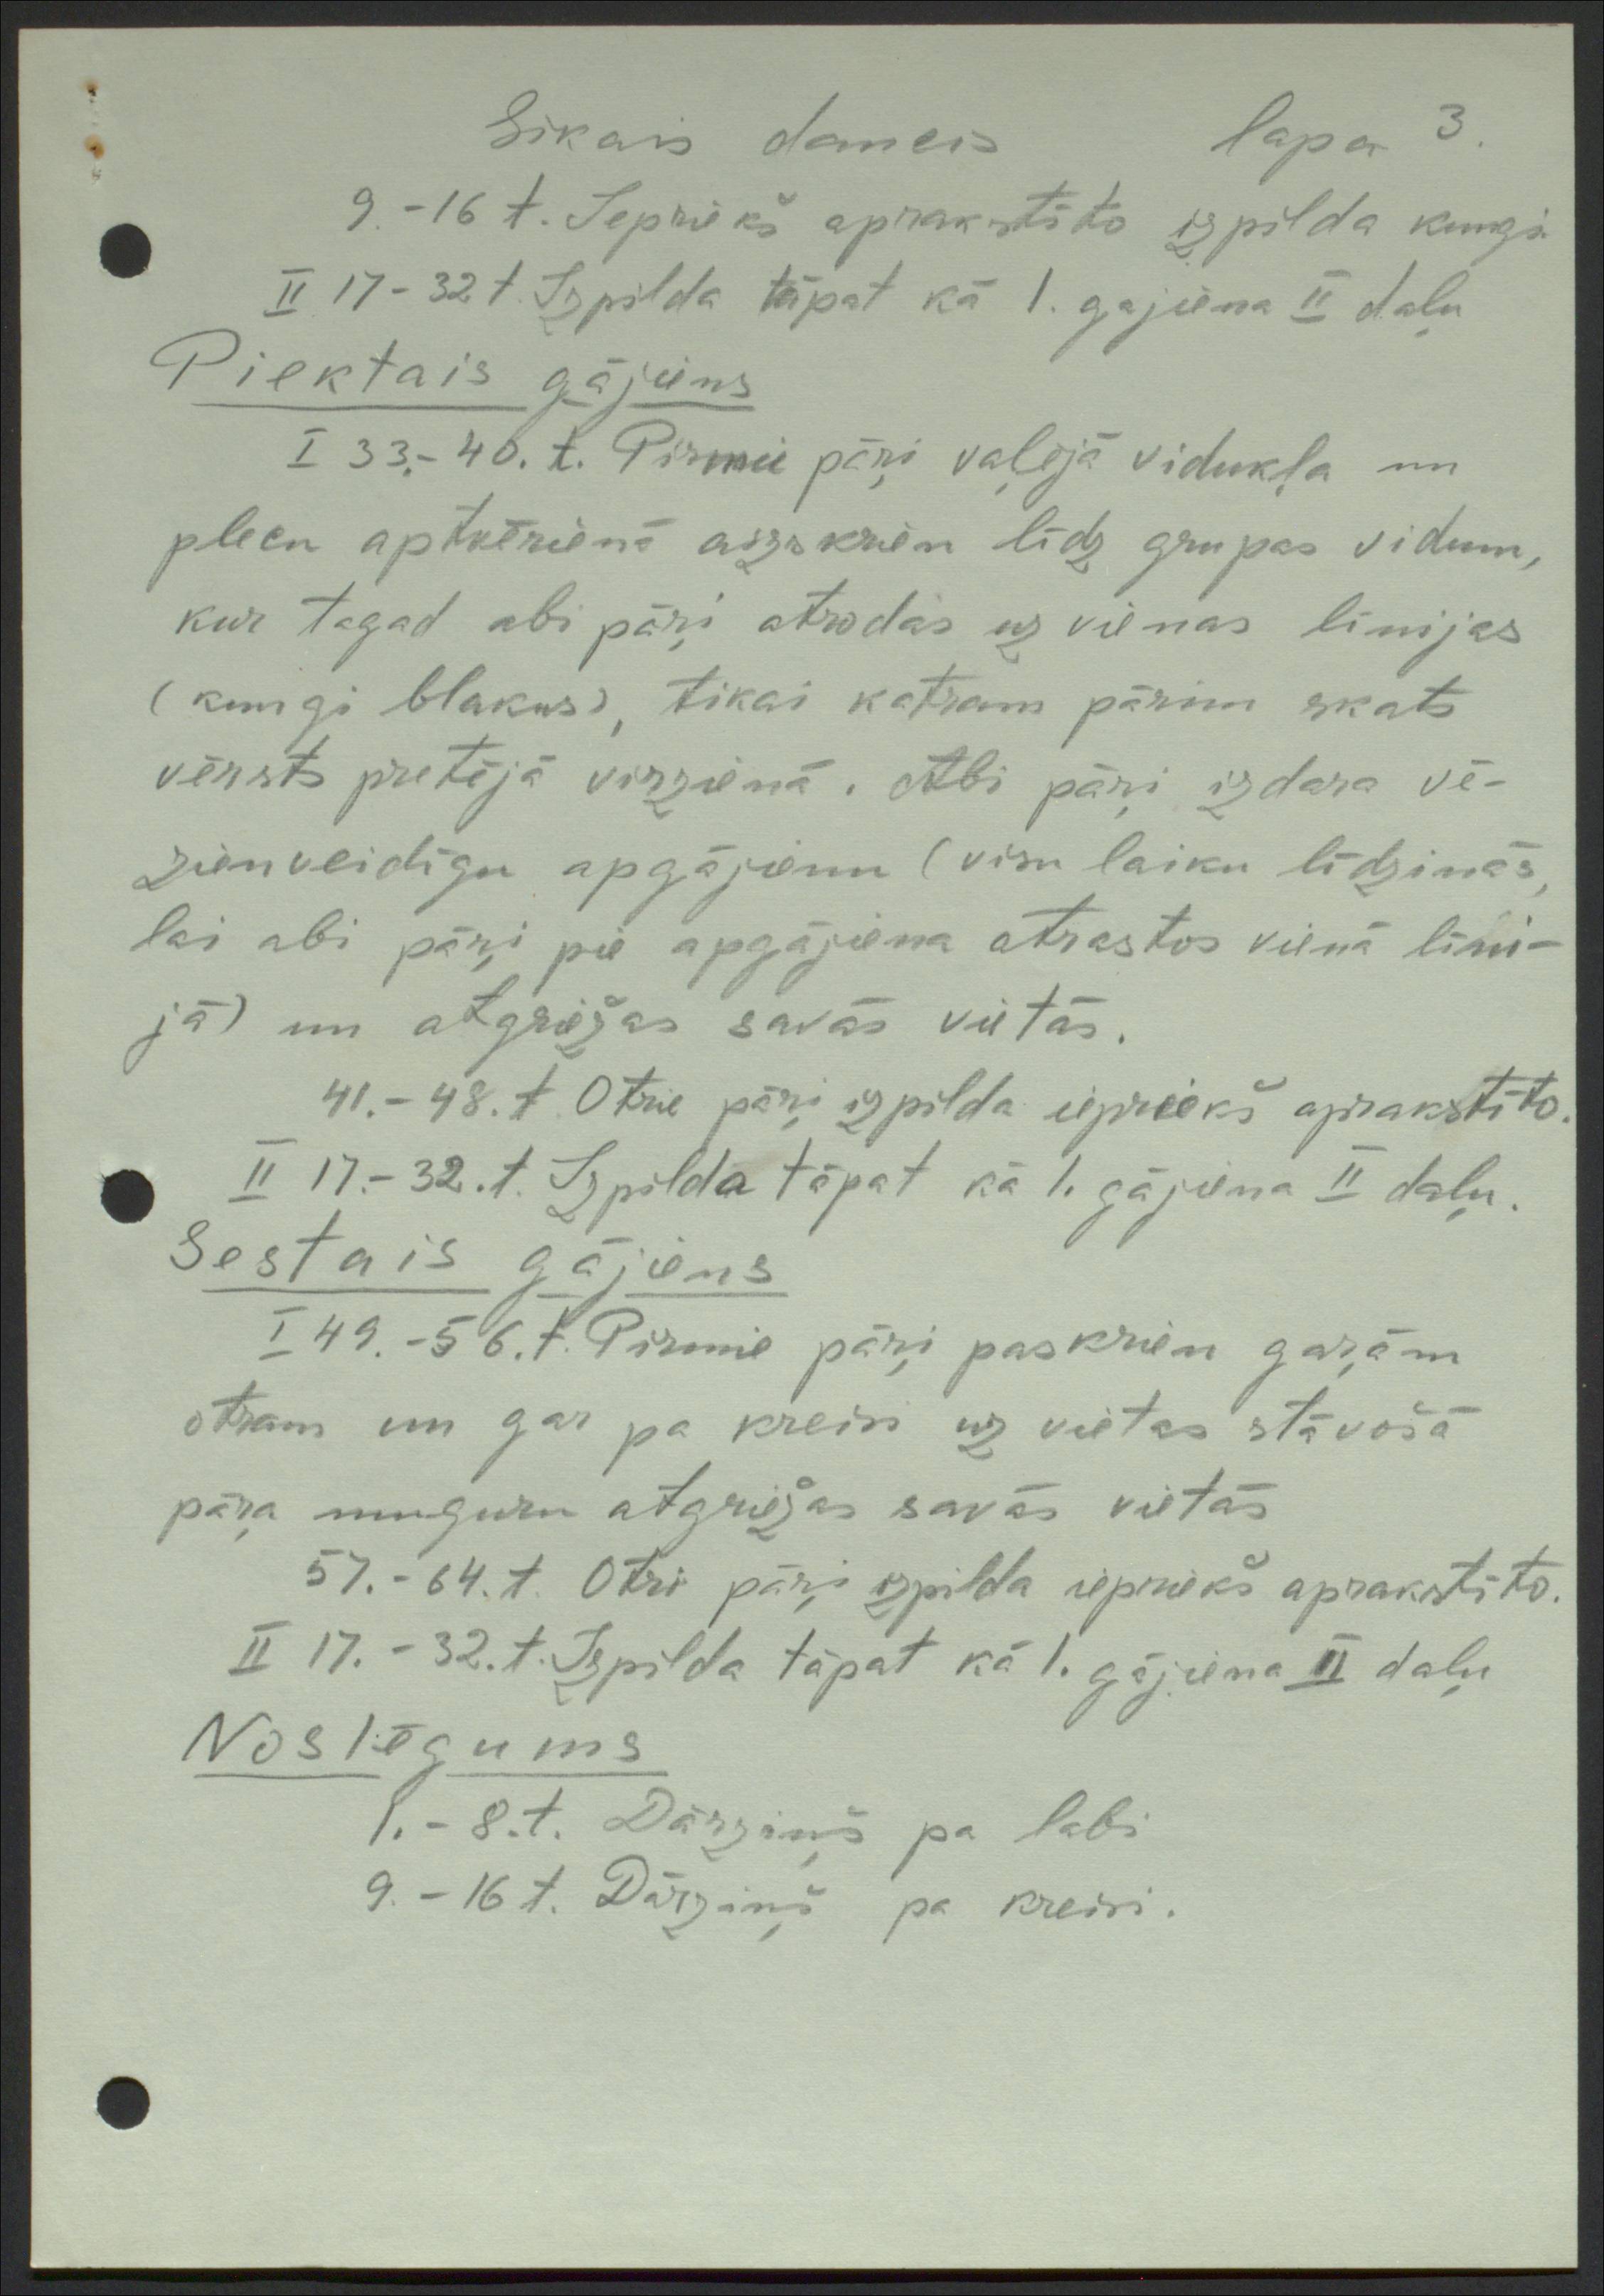 Sīkais dancis lapa 3.
9.-16 t. Iepriekš aprakstīto izpilda kungi
II 17-32 t. Izpilda tāpat kā 1. gajiena II daļu
Piektais gājiens
I 33.-40. t. Pirmie pāŗi vaļējā vidukļa un
plecu aptvērienā aizskrien līdz grupas vidum,
kur tagad abi pāŗi atrodas uz vienas līnijas
(kungi blakus), tikai katram pārim skats
vērsts pretējā virzienā. Abi pāŗi izdara vē-
zienveidīgu apgājienu (visu laiku līdzinās,
lai abi pāŗi pie apgājiena atrastos vienā līni-
jā) un atgriežas savās vietās.
41.-48. t. Otrie pāŗi izpilda iepriekš aprakstīto.
II 17.-32. t. Izpilda tāpat kā 1. gājiena II daļu.
Sestais gājiens
I 49.-56. t. Pirmie pāŗi paskrien gaŗām
otram un gar pa kreisi uz vietas stāvošā
pāŗa muguru atgriežas savās vietās
57.-64. t. Otri pāŗi izpilda iepriekš aprakstīto.
II 17.-32. t. Izpilda tāpat kā 1. gājiena II daļu
Noslēgums
1.-8. t. Dārziņš pa labi
9.-16 t. Dārziņš pa kreisi.